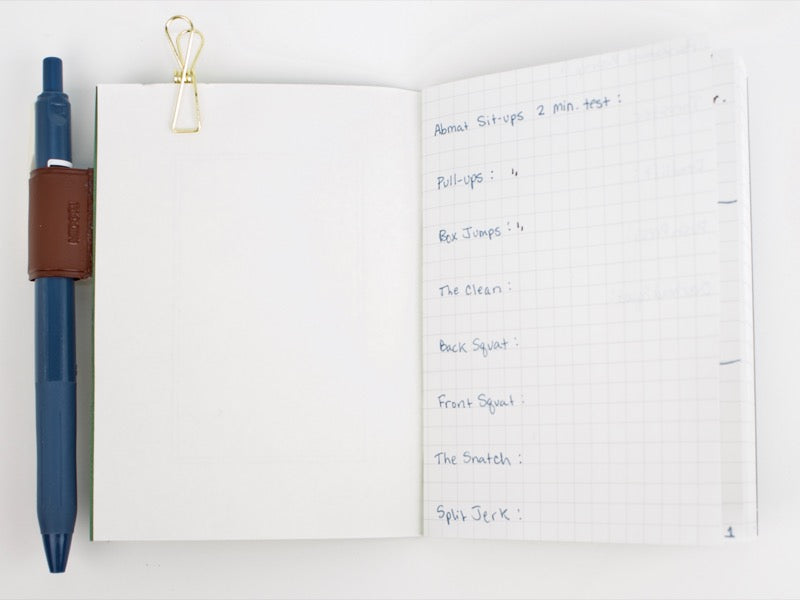 Abmat Sit-ups 2 min. test :
Pull-ups : "
Box Jumps : "
The Clean :
Back Squat :
Front Squat :
The Snatch :
Split Jerk :
1